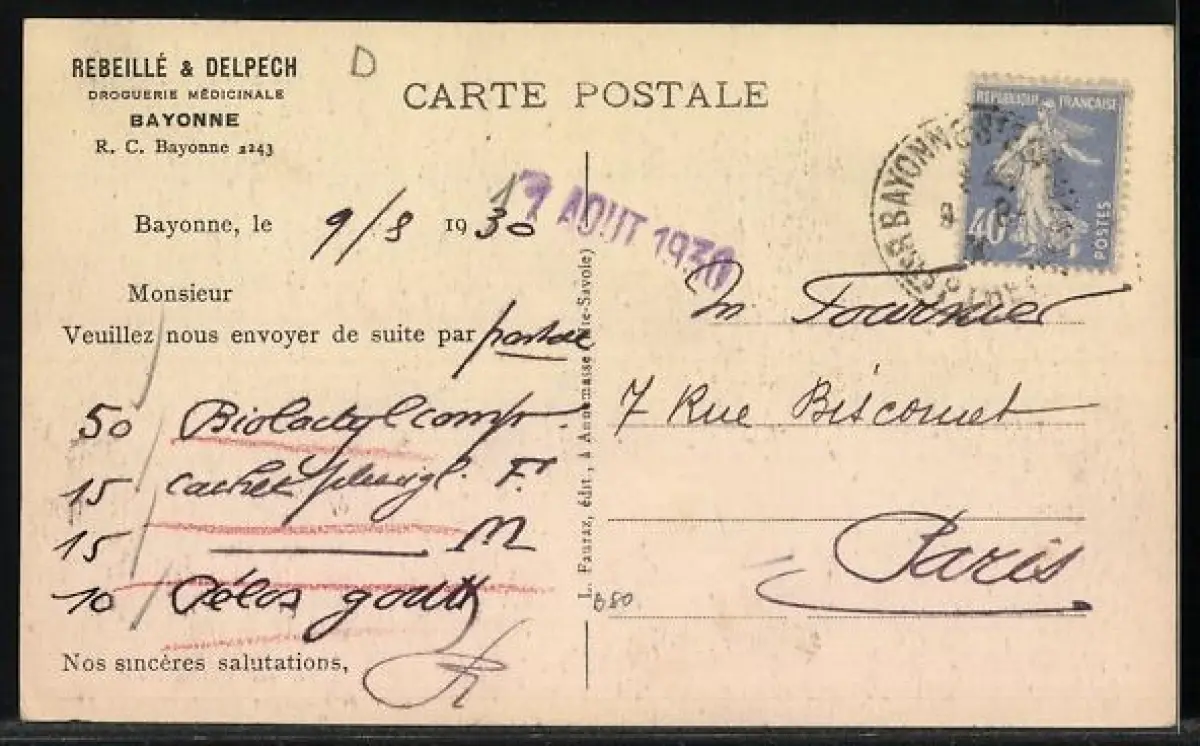 REBEILLÉ & DELPECH
DROGUERIE MÉDICINALE
BAYONNE
R. C. Bayonne 2243
D
CARTE POSTALE
RÉPUBLIQUE FRANÇAISE
40
POSTES
BAYONNE
Bayonne, le 9/8 1930
AOUT 1930
Monsieur
Veuillez nous envoyer de suite par postal
50 Biolactyl comp
15 cachet F.
15 M
10 Pélos goutt
Nos sincères salutations,
L. Fauraz, édit., à Annemasse (Hte-Savoie)
M Fournier
7 Rue Biscornet
Paris
B80